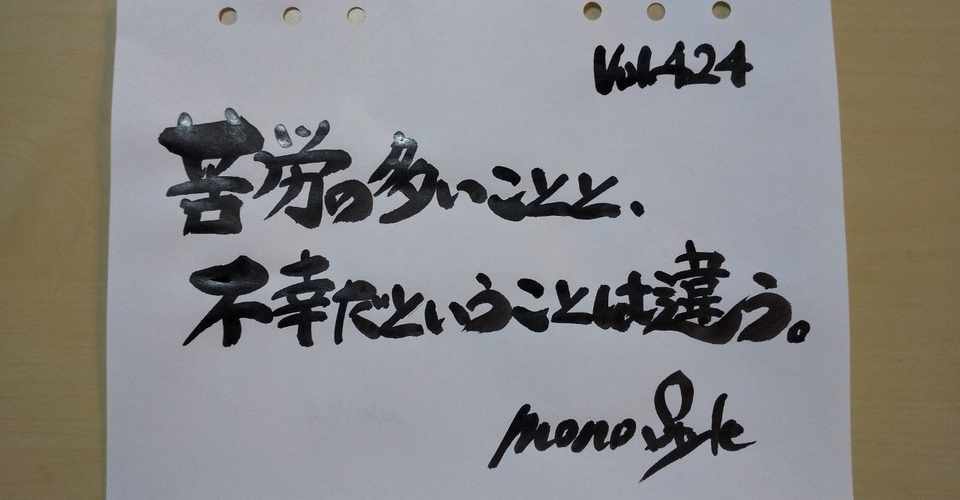 Vol.424
苦労の多いことと、
不幸だということは違う。
mono Style